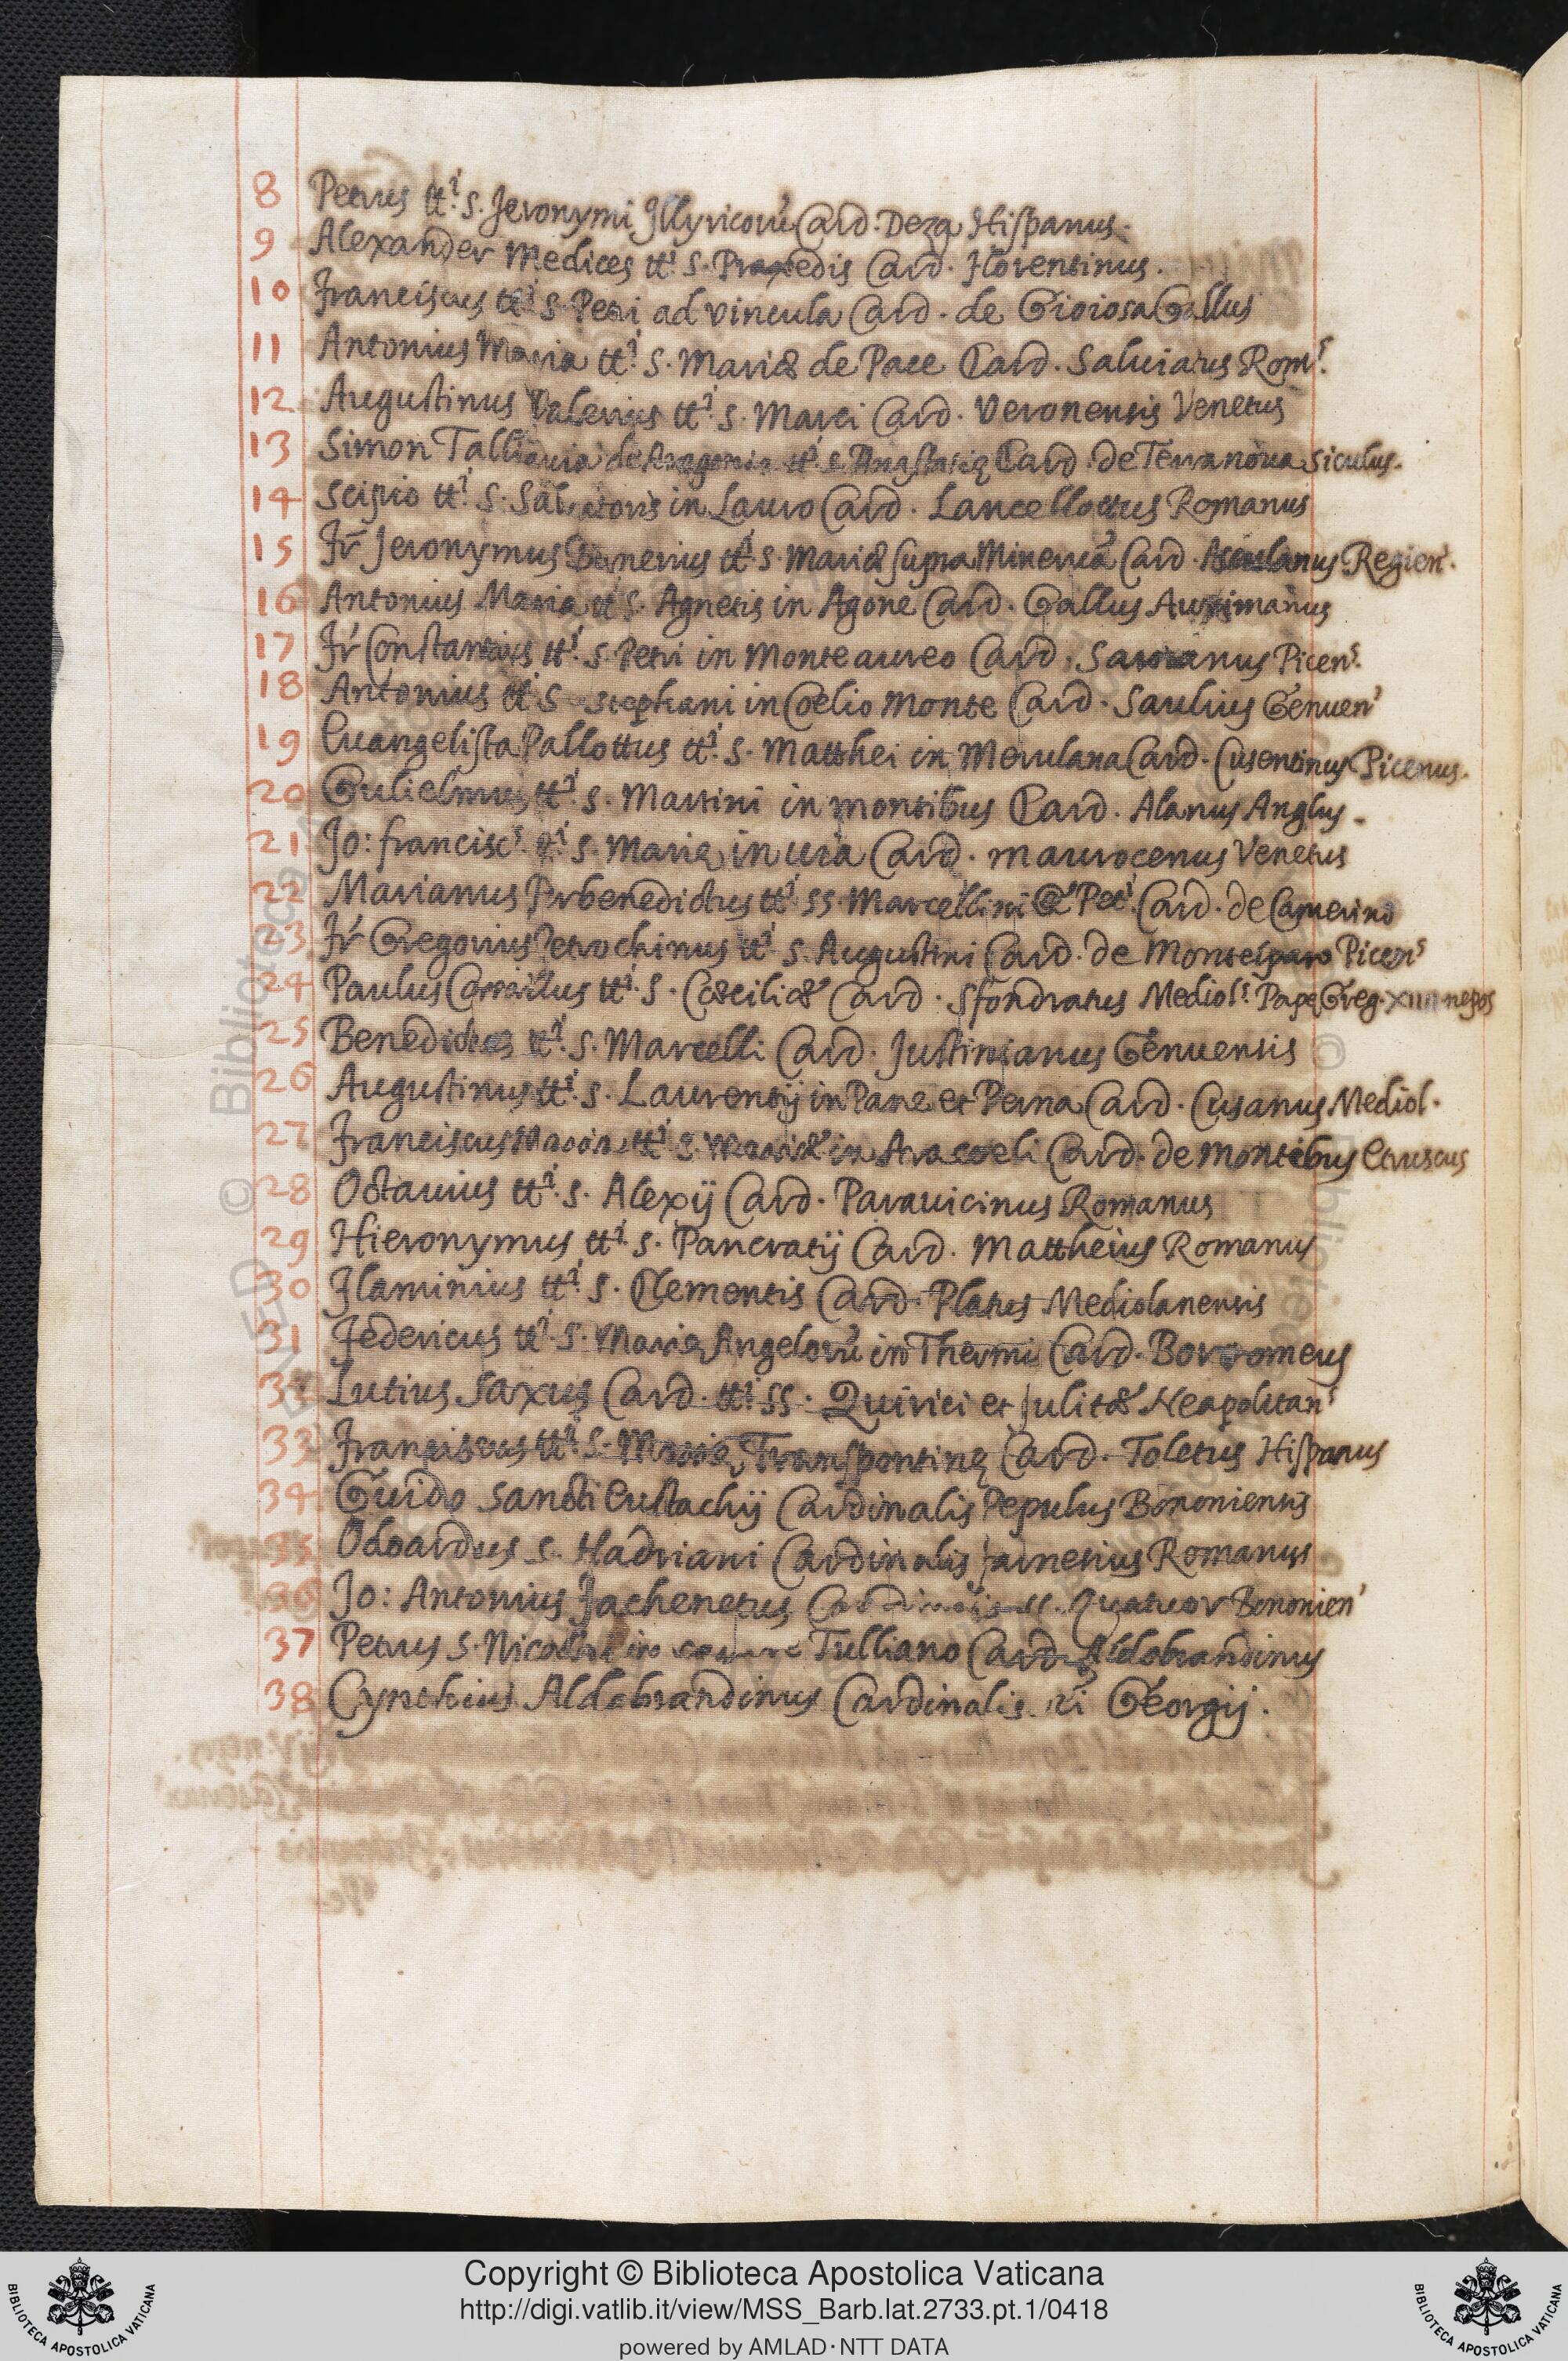 8 Petrus tt.ⁱ S. Jeronymi Jllyricorū Card. Deza Hispanus.
9 Alexander Medices tt.ⁱ S. Praxedis Card. Florentinus.
10 Franciscus tt.ⁱ S. Petri ad vincula Card. de Gioiosa Gallus
11 Antonius Maria tt.ⁱ S. Mariæ de Pace Card. Salviatus Rom.ˢ
12 Augustinus Valerius tt.ⁱ S. Marci Card. Veronensis Venetus
13 Simon Talliavia de Aragonia tt.ⁱ S. Anastasię Card. de Terranova Siculus.
14 Scipio tt.ⁱ S. Salvatoris in Lauro Card. Lancellottus Romanus
15 Fr̄ Jeronymus Bernerius tt.ⁱ S. Mariæ supra Minervā Card. Asculanus Regien'.
16 Antonius Maria tt.ⁱ S. Agnetis in Agone Card. Gallus Auximanus
17 Fr̄ Constantius tt.ⁱ S. Petri in Monte aureo Card. Sarnanus Picen.ˢ
18 Antonius tt.ⁱ S. Stephani in Coelio monte Card. Saulius Genuen'
19 Evangelista Pallottus tt.ⁱ S. Matthei in Merulana Card. Cusentinus Picenus.
20 Gulielmus tt.ⁱ S. Martini in montibus Card. Alanus Anglus.
21 Jo: francisc.ˢ tt.ⁱ S. Marię in via Card. maurocenus Venetus
22 Marianus Perbenedictus tt.ⁱ SS. Marcellini & Pet.ⁱ Card. de Camerino
23 Fr̄ Gregorius Petrochinus tt.ⁱ S. Augustini Card. de Montelparo Picen.ˢ
24 Paulus Camillus tt.ⁱ S. Cæciliæ Card. Sfondratus Mediol.ˢ Papę Greg. XIIII nepos
25 Benedictus tt.ⁱ S. Marcelli Card. Justinianus Genuensis
26 Augustinus tt.ⁱ S. Laurentij in Pane et Perna Card. Cusanus Mediol.
27 Franciscus Maria tt.ⁱ S. Mariæ in Aracoeli Card. de Montibus Etruscus
28 Octavius tt.ⁱ S. Alexij Card. Paravicinus Romanus
29 Hieronymus tt.ⁱ S. Pancratij Card. Mattheius Romanus
30 Flaminius tt.ⁱ S. Clementis Card. Platus Mediolanensis
31 Federicus tt.ⁱ S. Marię Angelorū in Thermis Card. Borromeus
32 Lutius Saxus Card. tt.ⁱ SS. Quirici et Julitæ Neapolitan.ˢ
33 Franciscus tt.ⁱ S. Marię Transpontinę Card. Toletus Hispanus
34 Guido Sancti Eustachij Cardinalis Pepulus Bononiensis
35 Odoardus S. Hadriani Cardinalis farnesius Romanus
36 Jo: Antonius Fachenetus Cardinalis SS. Quatuor Bononien'
37 Petrus S. Nicolai in carcere Tulliano Card. Aldobrandinus
38 Cynthius Aldobrandinus Cardinalis sⁱ Georgij.
Copyright © Biblioteca Apostolica Vaticana
http://digi.vatlib.it/view/MSS_Barb.lat.2733.pt.1/0418
powered by AMLAD·NTT DATA
BIBLIOTECA APOSTOLICA VATICANA
BIBLIOTECA APOSTOLICA VATICANA